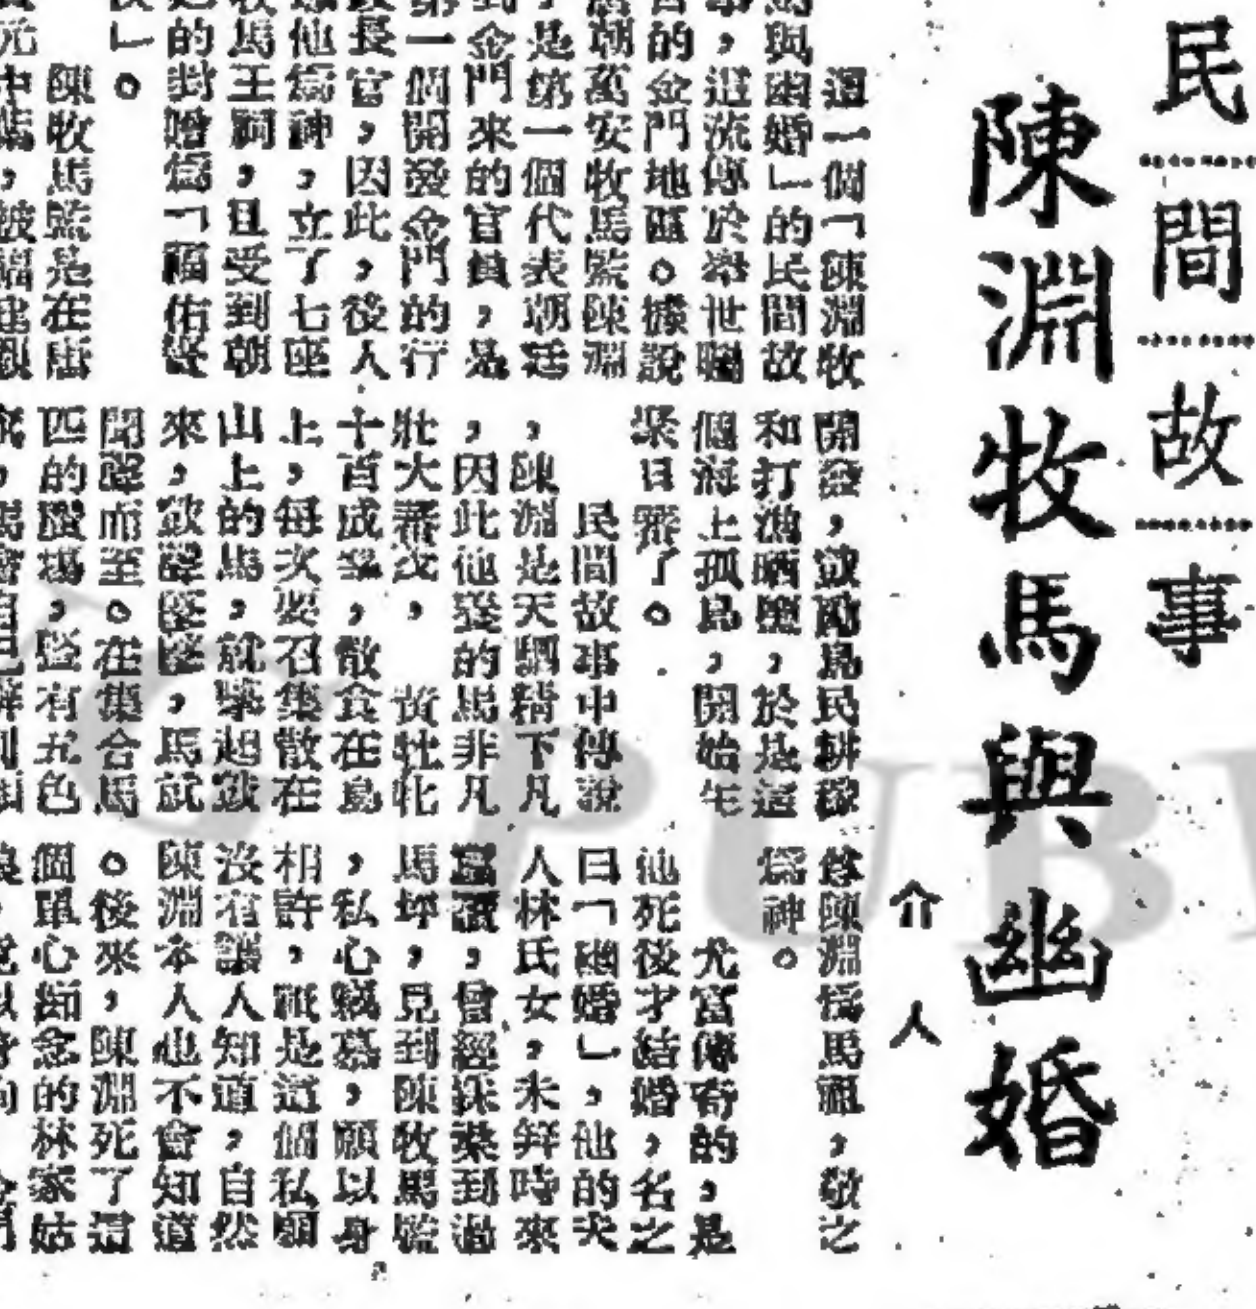 民間故事
陳淵牧馬與幽婚
介人
這一個「陳淵牧
馬與幽婚」的民間故
,這流傳於舉世矚
的金門地區。據說
唐朝萬安牧馬監陳淵
,是第一個代表朝廷
到金門來的官員,是
第一個開發金門的行
長官,因此,後人
他為神,立了七座
牧馬王祠,且受到朝
的封為「福佑聖
」。
陳牧馬監是在唐
元中葉,被福建觀
開發,鼓勵島民耕稼
和打漁晒鹽,於是這
個海上孤島,開始生
聚日繁了。
民間故事中傳說
,陳淵是天駟精下凡
,因此他養的馬非凡
壯大蕃茂,黃牡牝
十百成羣,散食在島
上,每次要召集散在
山上的馬,就擊起鼓
來,鼓聲鼕鼕,馬就
聞聲而至。在集合馬
匹的塲,豎有五色
,馬會自己辨別
陳淵為馬祖,敬之
為神。
尤富傳奇的,是
他死後才結婚,名之
曰「幽婚」,他的夫
人林氏女,未笄時來
,曾經採桑到過
馬坪,見到陳牧馬監
,私心竊慕,願以身
相許,祇是這個私願
沒有讓人知道,自然
陳淵本人也不會知道
。後來,陳淵死了這
個單心痴念的林家姑